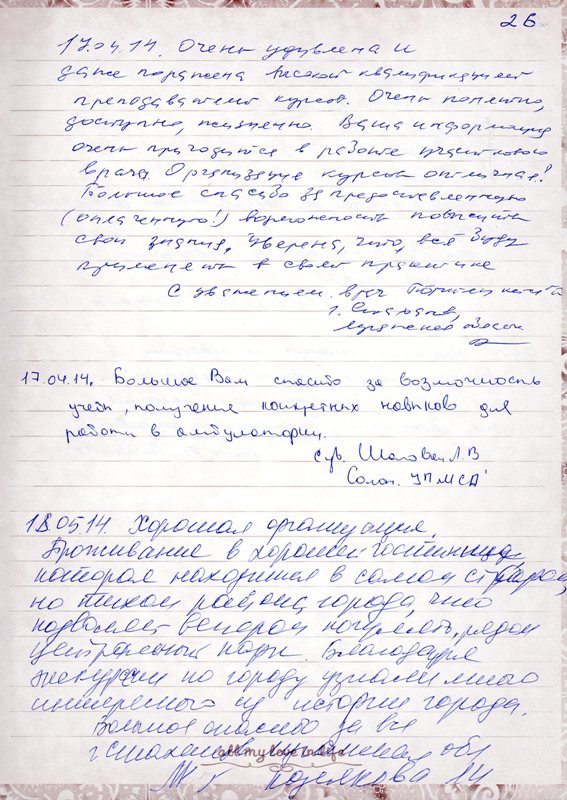 26
17.04.14. Очень удивлена и
даже поражена высокой квалификацией
преподавателей курсов. Очень понятно,
доступно, жизненно. Ваша информация
очень пригодится в работе участкового
врача. Организация курсов отличная!
Большое спасибо за предоставленную
(оплаченную!) возможность повысить
свои знания, уверена, что, всё буду
применять в своей практике
С уважением врач
г.
17.04.14. Большое Вам спасибо за возможность
учебы, получения конкретных навыков для
работы в амбулатории.
с ув. Л.В
18.05.14. Хорошая организация.
Проживание в хорошей гостинице
которая находится в самом старом,
но тихом районе города, что
позволяет вечером погулять, рядом
центральный парк. Благодаря
экскурсии по городу узнали много
интересного из истории города.
Большое спасибо за все
all my love in life